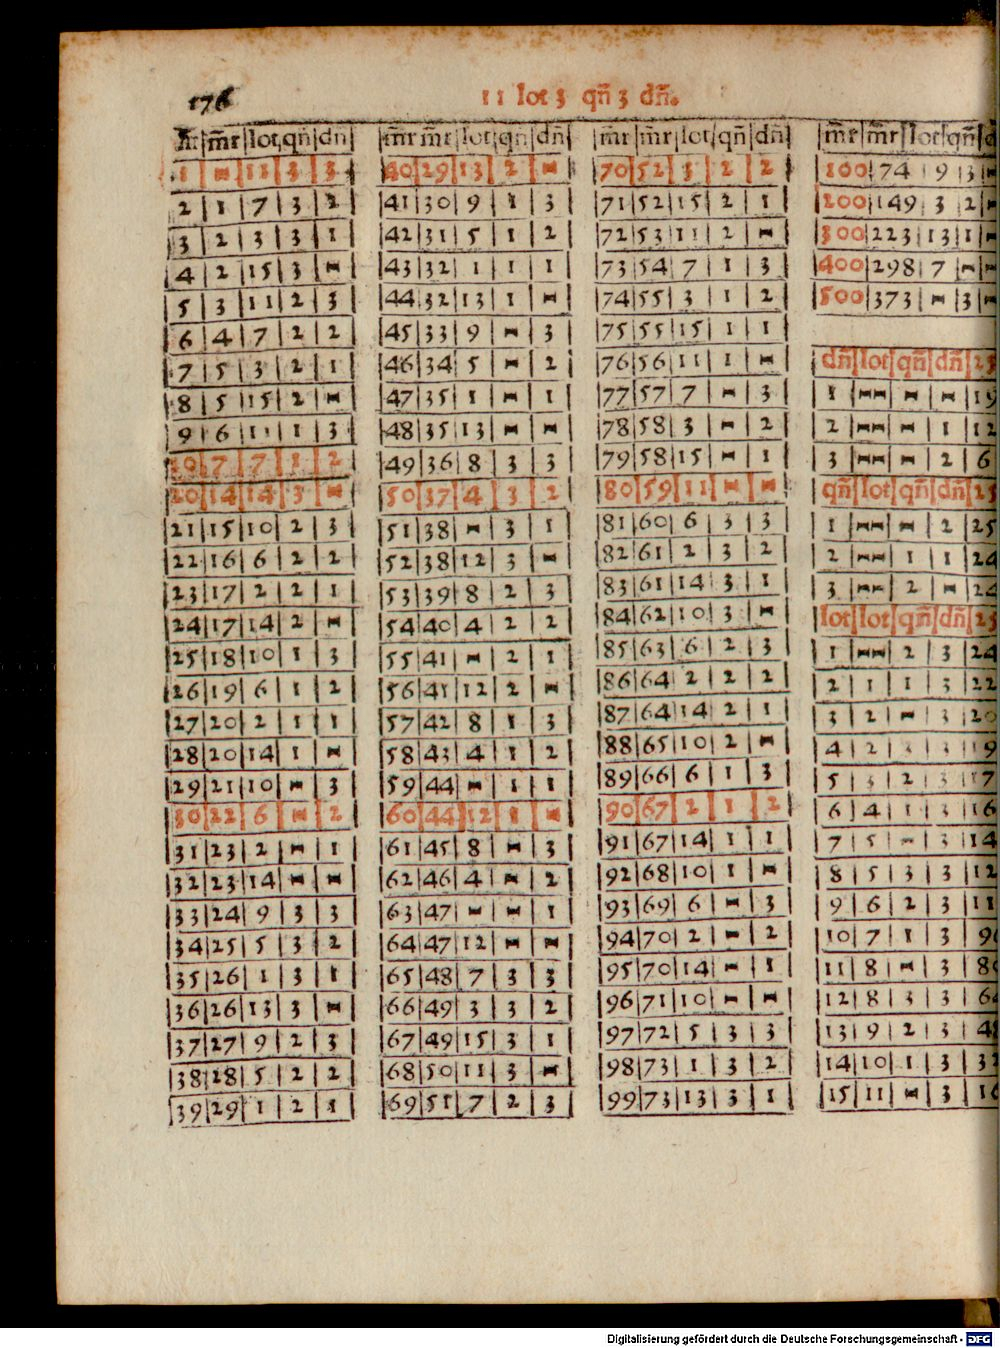 176
11 lot 3 qñ 3 dñ.
m̃r m̃r lot qñ dñ
1 - 11 3 3
2 1 7 3 2
3 2 3 3 1
4 2 15 3 -
5 3 11 2 3
6 4 7 2 2
7 5 3 2 1
8 5 15 2 -
9 6 11 1 3
10 7 7 1 2
20 14 14 3 -
21 15 10 2 3
22 16 6 2 2
23 17 2 2 1
24 17 14 2 -
25 18 10 1 3
26 19 6 1 2
27 20 2 1 1
28 20 14 1 -
29 21 10 - 3
30 22 6 - 2
31 23 2 - 1
32 23 14 - -
33 24 9 3 3
34 25 5 3 2
35 26 1 3 1
36 26 13 3 -
37 27 9 2 3
38 28 5 2 2
39 29 1 2 1
m̃r m̃r lot qñ dñ
40 29 13 2 -
41 30 9 1 3
42 31 5 1 2
43 32 1 1 1
44 32 13 1 -
45 33 9 - 3
46 34 5 - 2
47 35 1 - 1
48 35 13 - -
49 36 8 3 3
50 37 4 3 2
51 38 - 3 1
52 38 12 3 -
53 39 8 2 3
54 40 4 2 2
55 41 - 2 1
56 41 12 2 -
57 42 8 1 3
58 43 4 1 2
59 44 - 1 1
60 44 12 1 -
61 45 8 - 3
62 46 4 - 2
63 47 - - 1
64 47 12 - -
65 48 7 3 3
66 49 3 3 2
67 49 15 3 1
68 50 11 3 -
69 51 7 2 3
m̃r m̃r lot qñ dñ
70 52 3 2 2
71 52 15 2 1
72 53 11 2 -
73 54 7 1 3
74 55 3 1 2
75 55 15 1 1
76 56 11 1 -
77 57 7 - 3
78 58 3 - 2
79 58 15 - 1
80 59 11 - -
81 60 6 3 3
82 61 2 3 2
83 61 14 3 1
84 62 10 3 -
85 63 6 2 3
86 64 2 2 2
87 64 14 2 1
88 65 10 2 -
89 66 6 1 3
90 67 2 1 2
91 67 14 1 1
92 68 10 1 -
93 69 6 - 3
94 70 2 - 2
95 70 14 - 1
96 71 10 - -
97 72 5 3 3
98 73 1 3 2
99 73 13 3 1
m̃r m̃r lot qñ d
100 74 9 3 -
200 149 3 2 -
300 223 13 1 -
400 298 7 - -
500 373 - 3 -
dñ lot qñ dñ 25
1 - - - 19
2 - - 1 12
3 - - 2 6
qñ lot qñ dñ 25
1 - - 2 25
2 - 1 1 24
3 - 2 - 24
lot lot qñ dñ 25
1 - 2 3 24
2 1 1 3 22
3 2 - 3 20
4 2 3 3 19
5 3 2 3 17
6 4 1 3 16
7 5 - 3 14
8 5 3 3 12
9 6 2 3 11
10 7 1 3 9
11 8 - 3 8
12 8 3 3 6
13 9 2 3 4
14 10 1 3 3
15 11 - 3 1
Digitalisierung gefördert durch die Deutsche Forschungsgemeinschaft - DFG